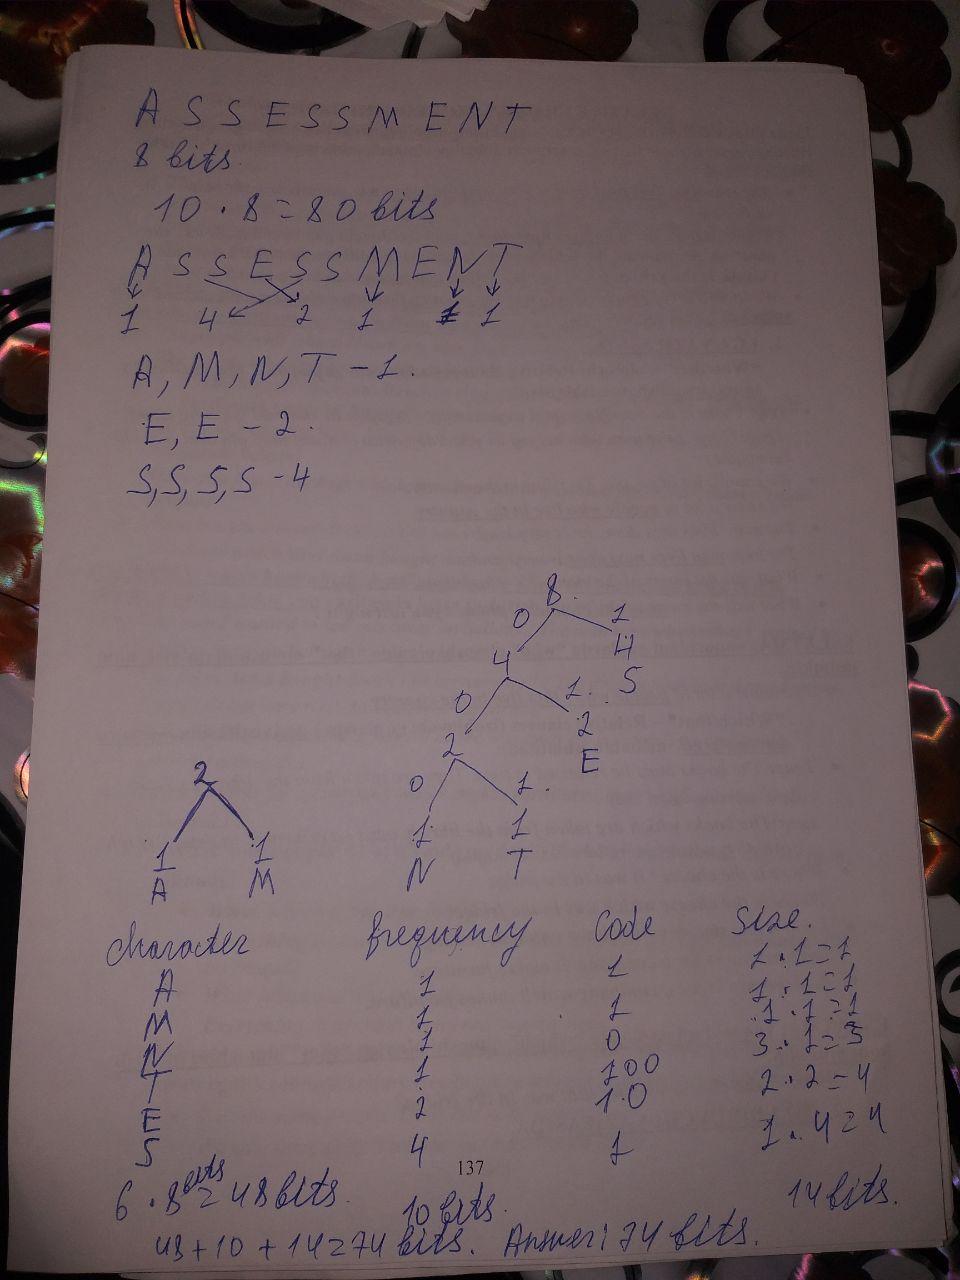 A S S E S S M E N T
8 bits.
10 . 8 = 80 bits
A S S E S S M E N T
1 4 2 1 1 1
A, M, N, T - 1.
E, E - 2.
S, S, S, S - 4
8.
0 1
4 4
S
0 1.
2 2
E
0 1.
1 1
N T
2
1 1
A M
character frequency Code Size.
A 1 1 1 . 1 = 1
M 1 1 1 . 1 = 1
N 1 0 1 . 1 = 1
T 1 100 3 . 1 = 3
E 2 1.0 2 . 2 = 4
S 4 1 1 . 4 = 4
137
6 . 8 bits = 48 bits. 10 bits. 14 bits.
48 + 10 + 14 = 74 bits. Answer: 74 bits.